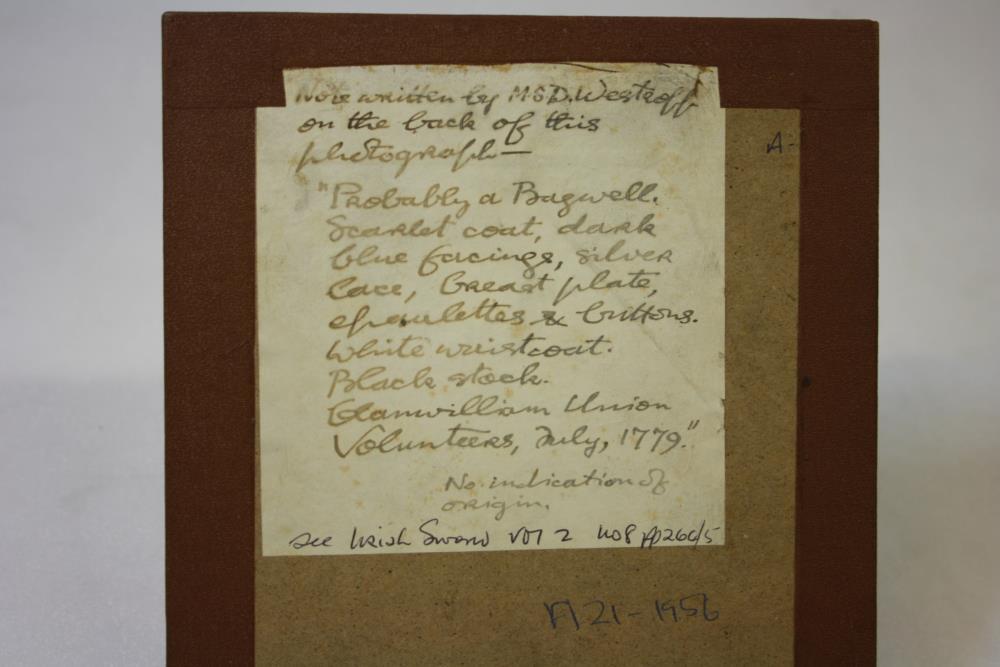 Note written by M.S.D. Westropp
on the back of this
photograph—
A-
"Probably a Bagwell.
Scarlet coat, dark
blue facings, silver
lace, breast plate,
epaulettes & buttons.
White waistcoat.
Black stock.
Clanwilliam Union
Volunteers, July, 1779."
No indication of
origin.
see Irish Sword vol 2 no 8
21-1956